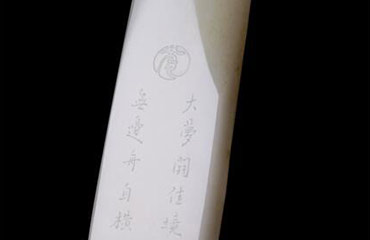 大夢開佳境
無邊舟自橫